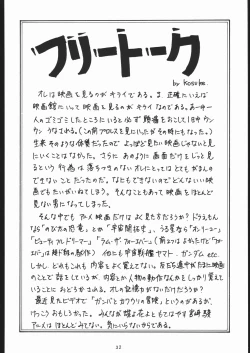 フリートーク
by kosuke.
オレは映画を見るのがキライである。ま、正確にいえば
映画館にいって映画を見るのがキライなのである。あーゆー
人のゴミゴミしたところにいると必ず頭痛をおこし1日中ウン
ウンうなされる。
生来そのような体質だったので よっぽど見たい映画じゃないと見
にいくことはなかった。さらに あのように画面だけをじっと見
るという行為は落ちつきのないオレにとってはとてもがまんの
できないことだったのだ。なにもできないのでどんなにいい映画
でもたいがいねてしまう。そんなこともあって映画をほとんど
見ない男になってしまった。
そんな中でも アニメ映画だけは よく見た方だろうか？ドラえもん
なら「のび太の恐竜」とか「宇宙開拓史」、うる星なら「オンリーユー」
「ビューティフルドリーマー」「ラム・ザ・フォーエバー」
他にも宇宙戦艦ヤマト、ガンダム etc.
しかし どれもこれも 内容をよく覚えてない。
のことで話をしているが、内容とか、人物の動作なんかをしっかり覚えて
いることにおどろかされる。オレの記憶力がないだけだろうか？
最近見たビデオで「ガンバとカワウソの冒険」というのがあるが、
けっこうおもしろかった。みんなが観るよともはや宮崎駿
アニメはほとんどみてない。気にいらないからである。
32